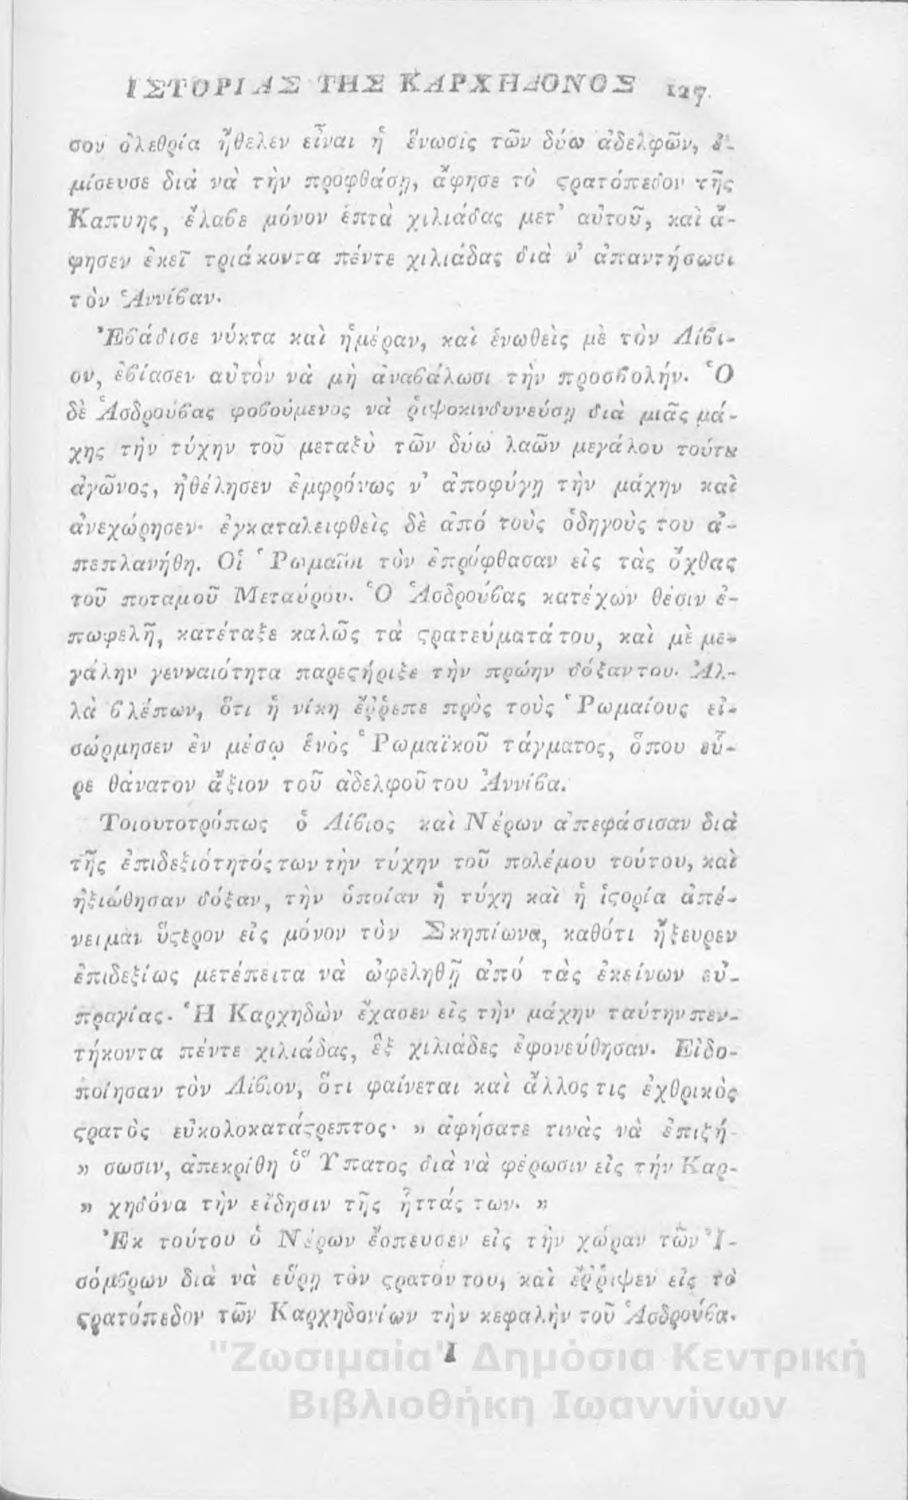 ΙΣΤΟΡΙΑΣ ΤΗΣ ΚΑΡΧΗΔΟΝΟΣ 127.
σον ὀλεθρία ἤθελεν εἶναι ἡ ἕνωσίς τῶν δύω ἀδελφῶν,
μίσευσε διὰ νὰ τὴν προφθάσῃ, ἄφησε τὸ ϛρατόπεδον τῆς
Καπυης, ἔλαβε μόνον ἑπτὰ χιλιάδας μετ᾽ αὐτοῦ, καὶ ἄ-
φησεν ἐκεῖ τριάκοντα πέντε χιλιάδας διὰ ν᾽ ἀπαντήσωσι
τὸν Ἀννίβαν.
Ἐβάδισε νύκτα καὶ ἡμέραν, καὶ ἑνωθεὶς μὲ τὸν Λίβι-
ον, ἐβίασεν αὐτὸν νὰ μὴ ἀναβάλωσι τὴν προσβολήν. Ὁ
δὲ Ἀσδρούβας φοβούμενος νὰ ῥιψοκινδυνεύσῃ διὰ μιᾶς μά-
χης τὴν τύχην τοῦ μεταξὺ τῶν δύω λαῶν μεγάλου τούτȣ
ἀγῶνος, ἠθέλησεν ἐμφρόνως ν᾽ ἀποφύγῃ τὴν μάχην καὶ
ἀνεχώρησεν· ἐγκαταλειφθεὶς δὲ ἀπό τοὺς ὁδηγοὺς του ἀ-
πεπλανήθη. Οἱ Ῥωμαῖοι τὸν ἐπρόφθασαν εἰς τὰς ὄχθας
τοῦ ποταμοῦ Μεταύρου. Ὁ Ἀσδρούβας κατέχων θέσιν ἐ-
πωφελῆ, κατέταξε καλῶς τὰ ϛρατεύματά του, καὶ μὲ με-
γάλην γενναιότητα παρεϛήριξε τὴν πρώην δόξαν του. Ἀλ-
λὰ βλέπων, ὅτι ἡ νίκη ἔῤῥεπε πρὸς τοὺς Ῥωμαίους εἰ-
σώρμησεν ἐν μέσῳ ἑνὸς Ῥωμαϊκοῦ τάγματος, ὅπου εὗ-
ρε θάνατον ἄξιον τοῦ ἀδελφοῦ του Ἀννίβα.
Τοιουτοτρόπως ὁ Λίβιος καὶ Νέρων ἀπεφάσισαν διὰ
τῆς ἐπιδεξιότητός των τὴν τύχην τοῦ πολέμου τούτου, καὶ
ἠξιώθησαν δόξαν, τὴν ὁποίαν ἡ τύχη καὶ ἡ ἱϛορία ἀπέ-
νειμαν ὕϛερον εἰς μόνον τὸν Σκηπίωνα, καθότι ἤξευρεν
ἐπιδεξίως μετέπειτα νὰ ὠφεληθῇ ἀπό τὰς ἐκείνων εὐ-
πραγίας. Ἡ Καρχηδὼν ἔχασεν εἰς τὴν μάχην ταύτην πεν-
τήκοντα πέντε χιλιάδας, ἓξ χιλιάδες ἐφονεύθησαν. Εἰδο-
ποίησαν τὸν Λίβιον, ὅτι φαίνεται καὶ ἄλλος τις ἐχθρικὸς
ϛρατὸς εὐκολοκατάϛρεπτος· » ἀφήσατε τινὰς νὰ ἐπιζή-
» σωσιν, ἀπεκρίθη ὁ Ὕπατος διὰ νὰ φέρωσιν εἰς τήν Καρ-
» χηδόνα τὴν εἴδησιν τῆς ἥττάς των. »
Ἐκ τούτου ὁ Νέρων ἔσπευσεν εἰς τὴν χώραν τῶν Ἰ-
σόμβρων διὰ νὰ εὕρῃ τὸν ϛρατόν του, καὶ ἔῤῥιψεν εἰς τὸ
ϛρατόπεδον τῶν Καρχηδονίων τὴν κεφαλὴν τοῦ Ἀσδρούβα.
I
"Ζωσιμαία" Δημόσια Κεντρική
Βιβλιοθήκη Ιωαννίνων